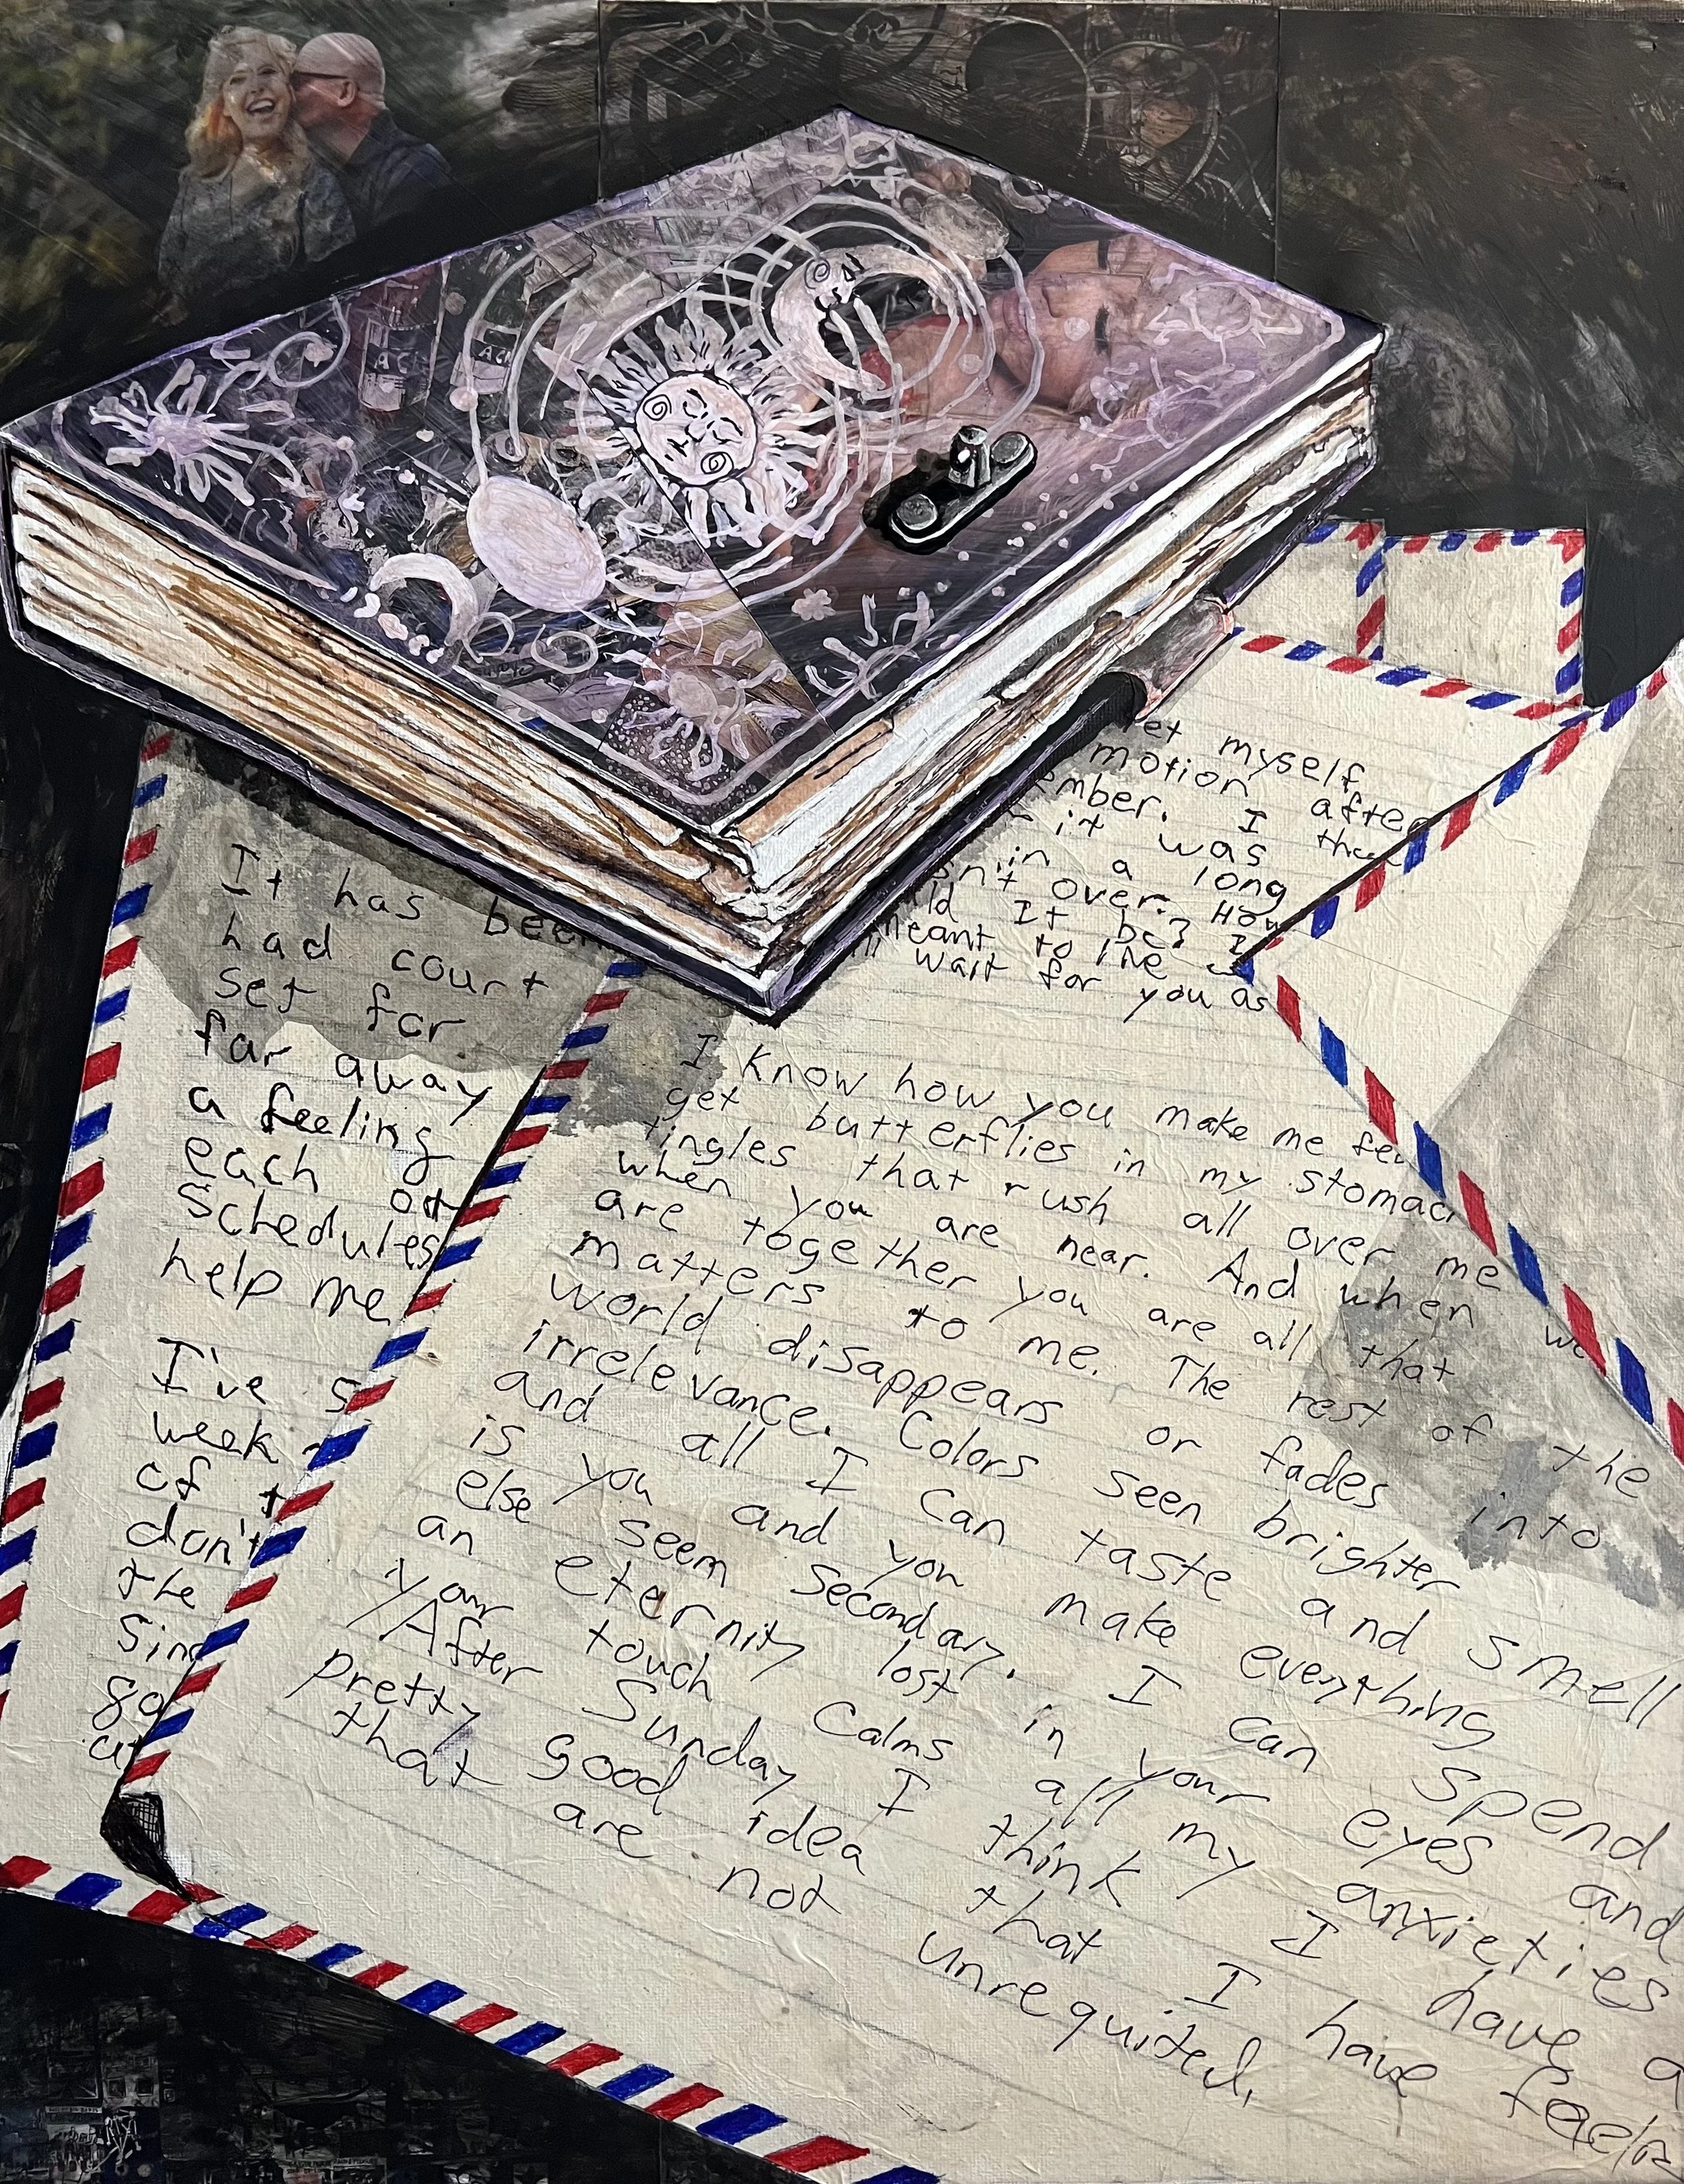 et myself
motion after
ember. I then
it was
in a long
sn't over. How
ld It be? I
meant to live
ll wait for you as
It has been
had court
set for
far away
a feeling
each ot
schedules
help me
I've s
week
of t
don't
the
Sinc
go
at
I know how you make me fee
get butterflies in my stomac
tingles that rush all over me
when you are near. And when we
are together you are all that
matters to me. The rest of the
world disappears or fades into
irrelevance. Colors seen brighter
and all I can taste and smell
is you and you make everything
else seem secondary. I can spend
an eternity lost in your eyes and
your touch calms all my anxieties
After Sunday I think I have a
pretty good idea that I have feelin
that are not unrequited.